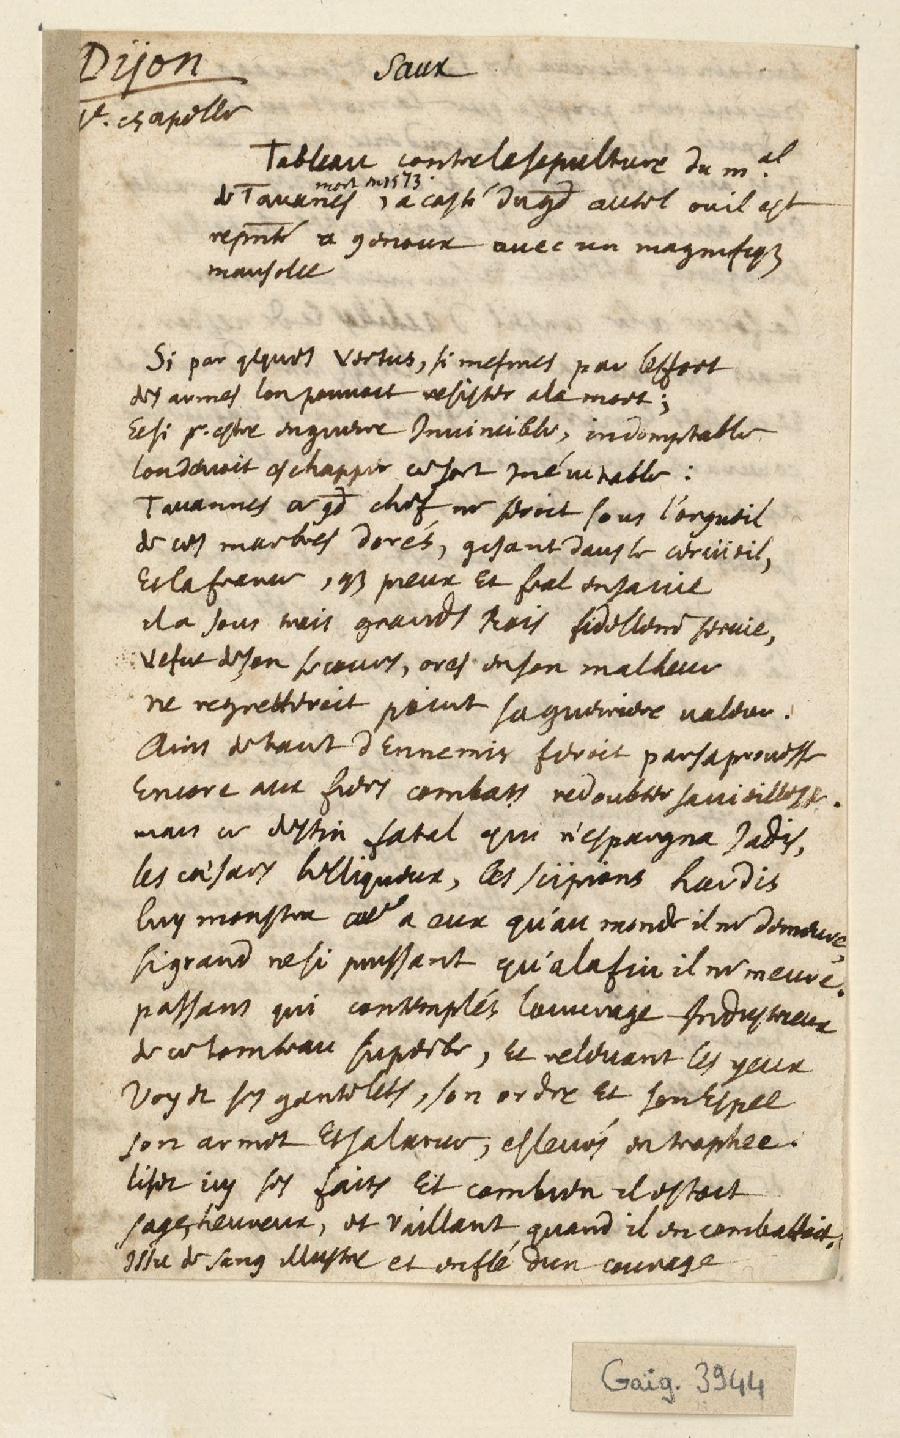 Dijon
Saux
Ste. chapelle
Tableau contre la sepulture du mal.
mort en 1573.
de Tavanes, a costé du gd autel ou il est
repnté a genoux avec un magnifiq3
mausolee
Si par qlques vertus, si mesmes par leffort
des armes lon pouvoit resister a la mort;
Et si pr. estre en guerre Invincible, indomptable
lon devoit eschapper ce sort inévitable :
Tavannes ce gd chef ne seroit sous l'orgueil
de ces marbres dorés, gisant dans le cercüeil,
Et la france, q3 preux Et feal en sa vie
il a sous trois grands Rois fidellemt servie,
vefue de son secours, ores en son malheur
ne regretteroit point sa guerriere valeur.
Ains de tant d'Ennemis feroit par sa prouesse
Encore aux fiers combats redoubter sa vieillesse.
mais ce destin fatal qui n'espargna Jadis,
les cesars belliqueux, les scipions hardis
luy monstre a eux qu'au monde il ne demeure,
si grand ne si puissant qu'a la fin il ne meure.
passans qui contemplés louvrage Industrieux
de ce tombeau superbe, Et relevant les yeux
Voyez ses gantelets, son ordre Et son Espee
son armet Et sa lance, eslevés en trophee.
lisez icy ses faits Et combien il estoit
sage, heureux, et vaillant quand il en combattoit,
Issu de sang illustre et enflé dun courage
Gaig. 3944